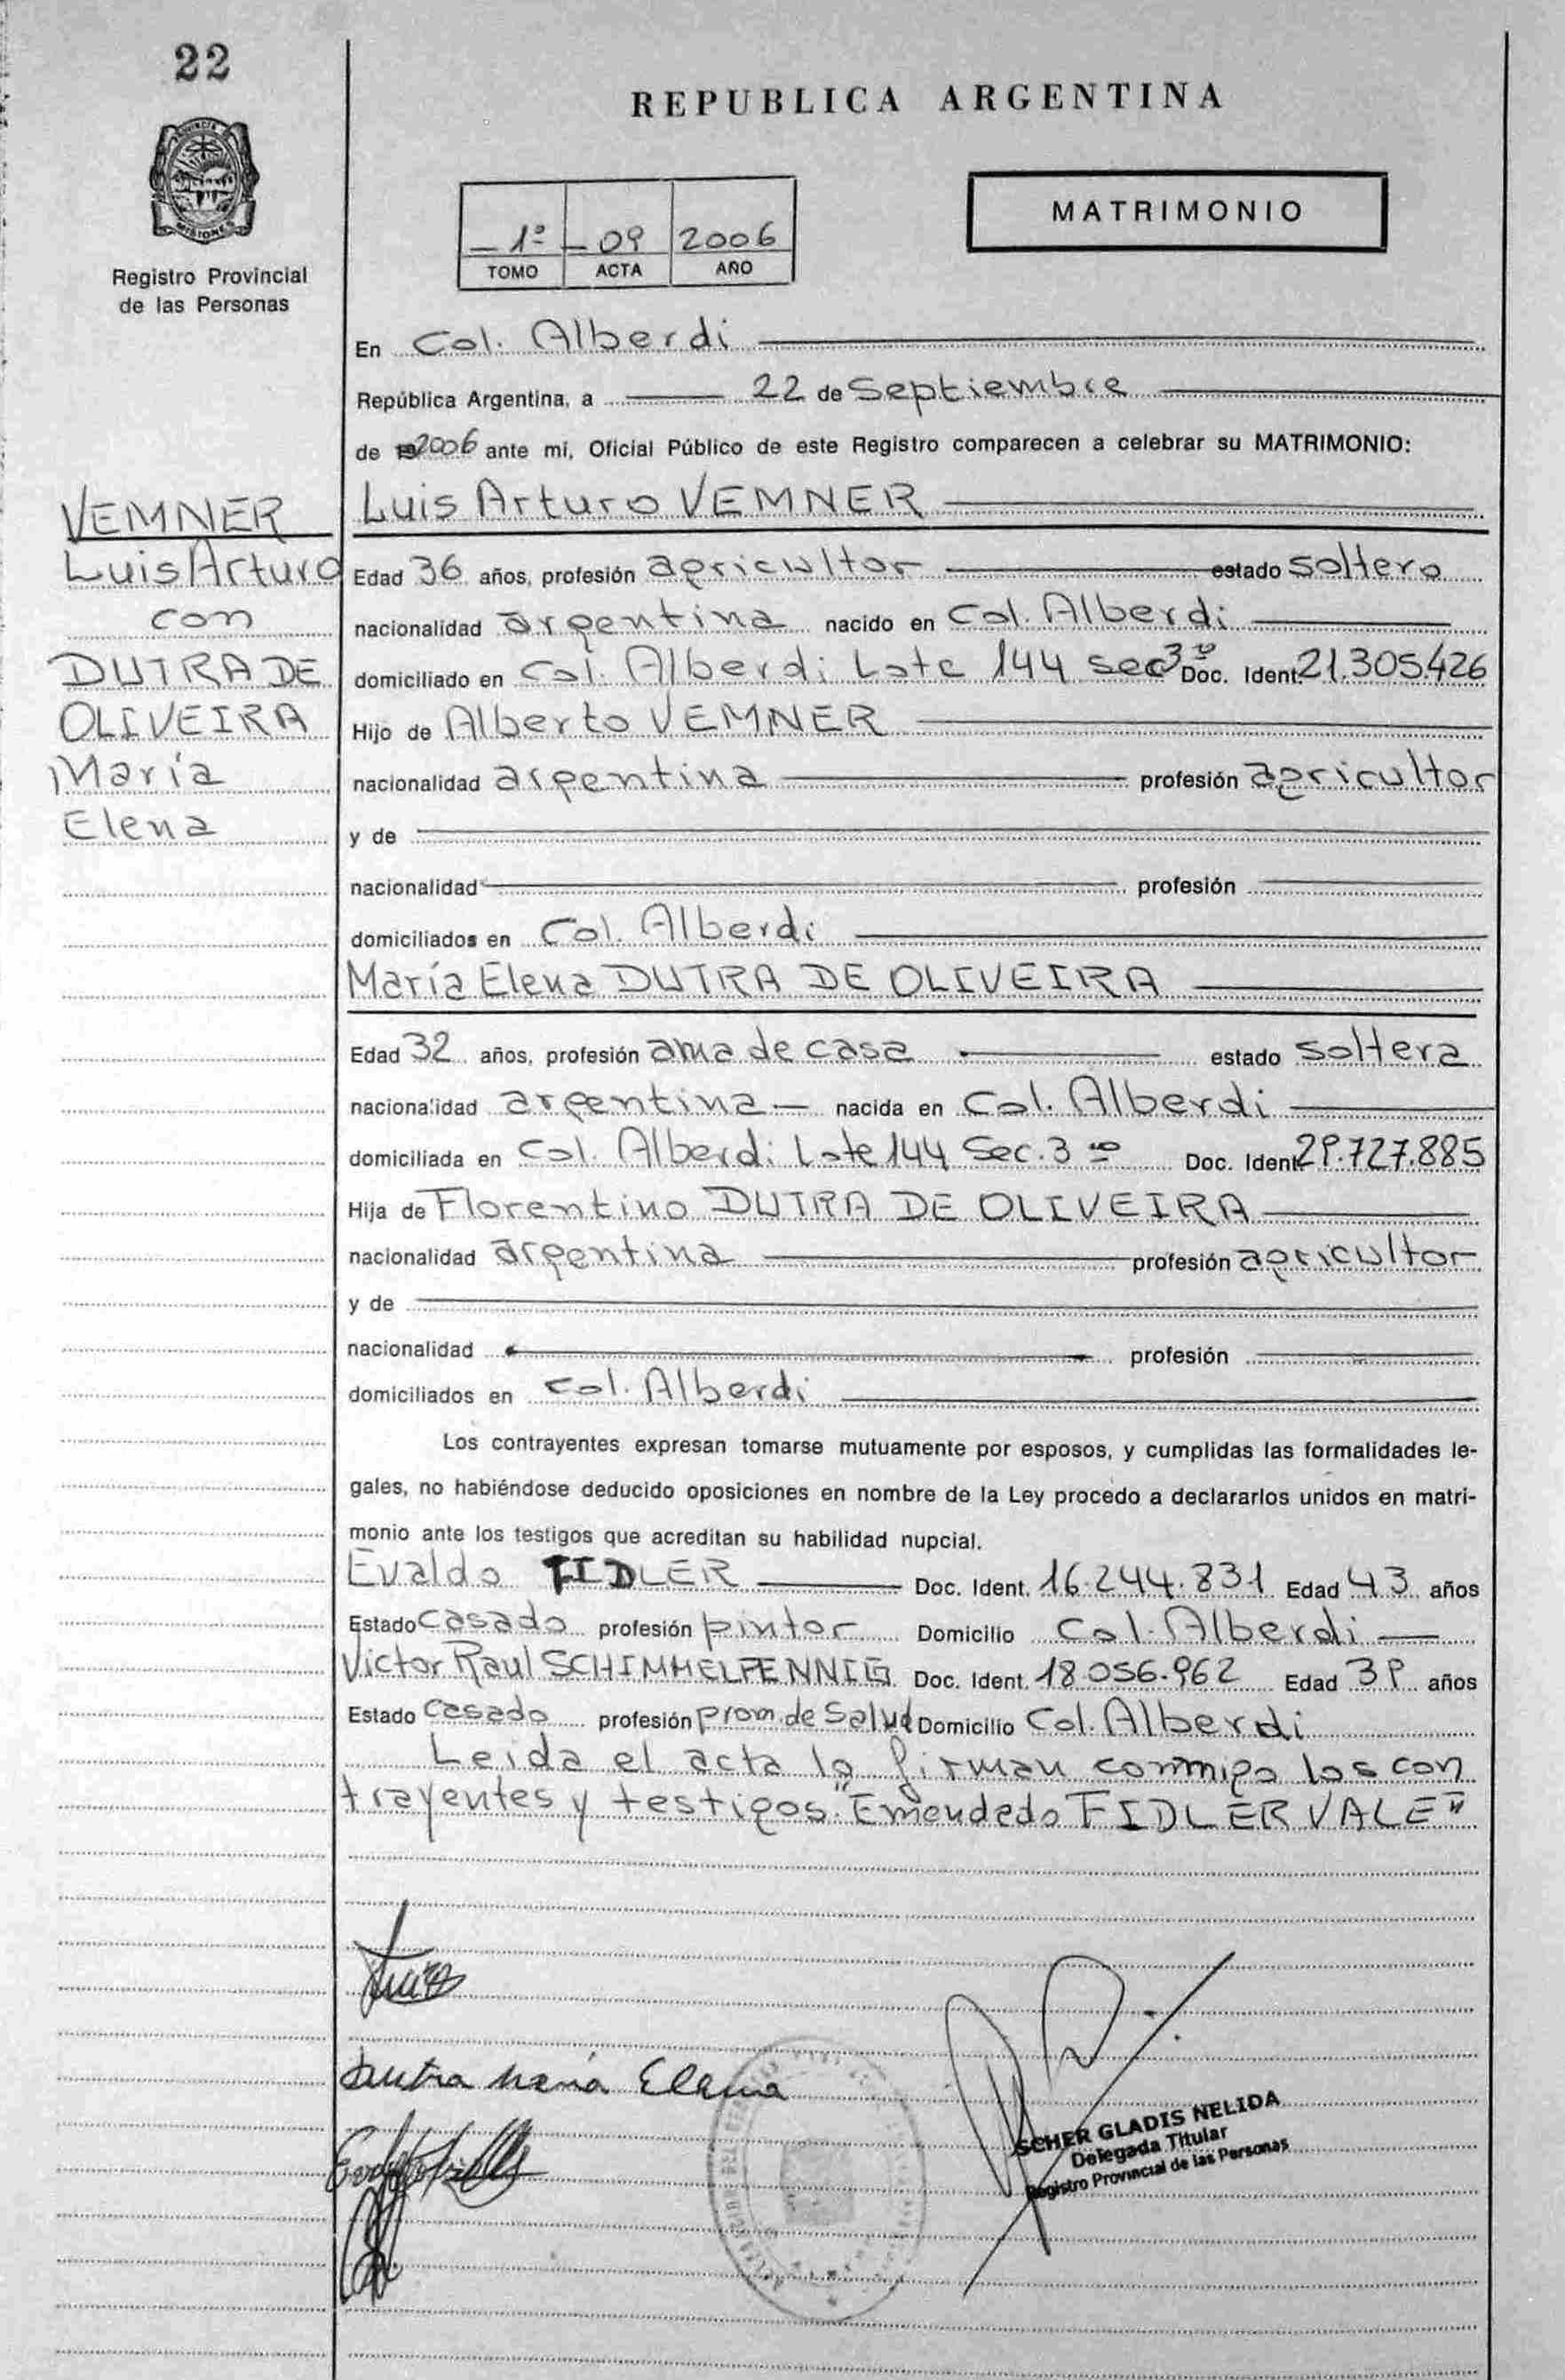 22
REPUBLICA ARGENTINA
PROVINCIA DE
MISIONES
Registro Provincial
de las Personas
MATRIMONIO
1º 09 2006
TOMO ACTA AÑO
En Col. Alberdi
República Argentina, a 22 de Septiembre
de 2006 ante mi, Oficial Público de este Registro comparecen a celebrar su MATRIMONIO:
VEMNER
Luis Arturo
con
DUTRA DE
OLIVEIRA
María
Elena
Luis Arturo VEMNER
Edad 36 años, profesión agricultor estado soltero
nacionalidad argentina nacido en Col. Alberdi
domiciliado en Col. Alberdi Lote 144 sec 3ª Doc. Ident. 21.305.426
Hijo de Alberto VEMNER
nacionalidad argentina profesión agricultor
y de
nacionalidad profesión
domiciliados en Col. Alberdi
María Elena DUTRA DE OLIVEIRA
Edad 32 años, profesión ama de casa estado soltera
nacionalidad argentina nacida en Col. Alberdi
domiciliada en Col. Alberdi Lote 144 Sec. 3ª Doc. Ident. 29.727.885
Hija de Florentino DUTRA DE OLIVEIRA
nacionalidad argentina profesión agricultor
y de
nacionalidad profesión
domiciliados en Col. Alberdi
Los contrayentes expresan tomarse mutuamente por esposos, y cumplidas las formalidades le-
gales, no habiéndose deducido oposiciones en nombre de la Ley procedo a declararlos unidos en matri-
monio ante los testigos que acreditan su habilidad nupcial.
Evaldo FIDLER Doc. Ident. 16.244.831 Edad 43 años
Estado casado profesión pintor Domicilio Col. Alberdi
Victor Raul SCHIMMELFENNIG Doc. Ident. 18.056.962 Edad 39 años
Estado casado profesión prom. de Salud Domicilio Col. Alberdi
Leida el acta la firman conmigo los con
trayentes y testigos. "Emendado FIDLER VALE"
Dutra María Elena
SCHER GLADIS NELIDA
Delegada Titular
Registro Provincial de las Personas